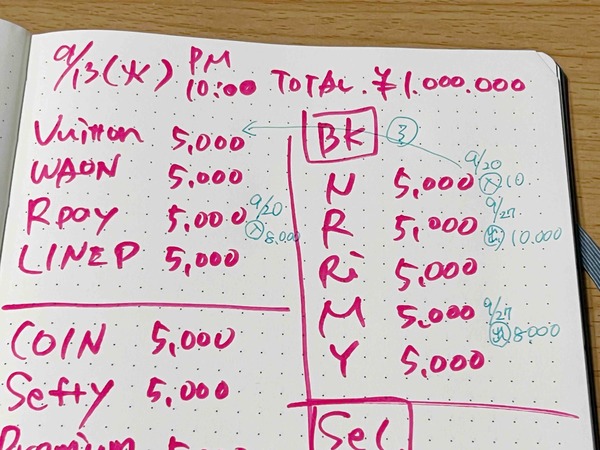 9/13(火) PM 10:00 TOTAL ¥1.000.000
Vuitton 5,000
WAON 5,000
Rpay 5,000 9/20 入 8,000
LINEP 5,000
COIN 5,000
Sefty 5,000
Premium
BK 3
N 5,000 9/20 入 10.
R 5,000 9/27 出 10,000
Ri 5,000
M 5,000 9/27 出 8.000
Y 5,000
Sec.